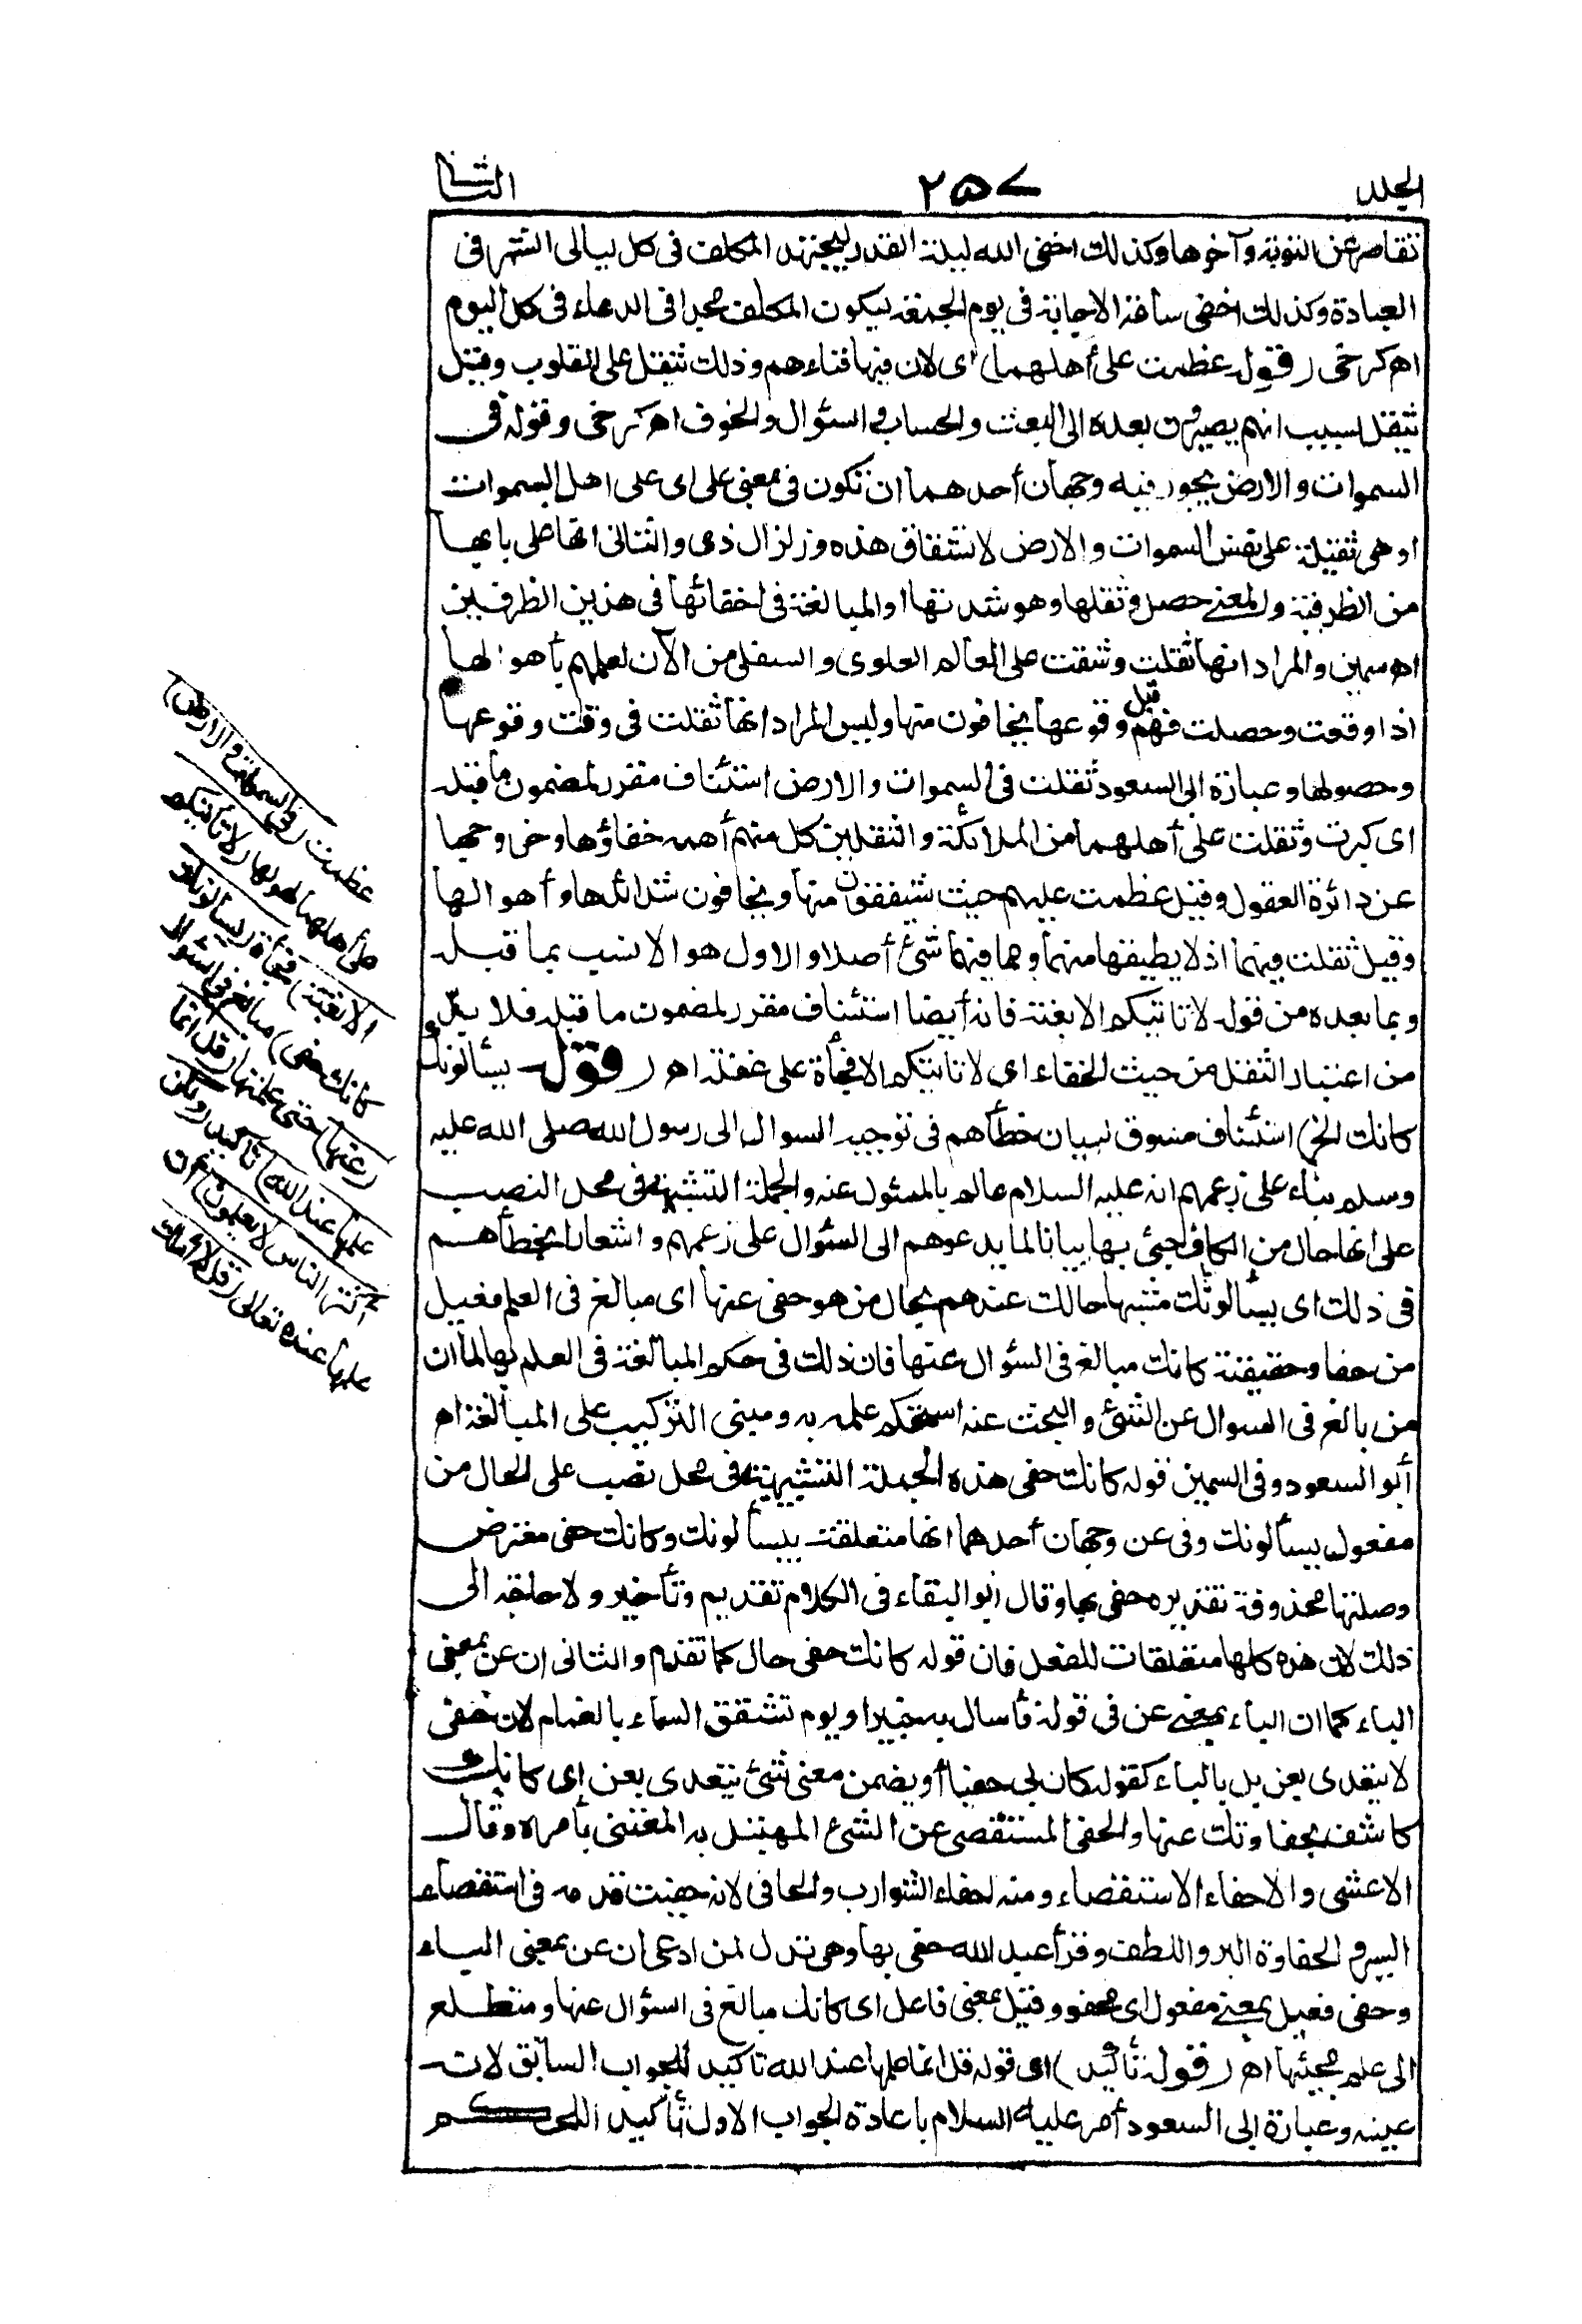 الجلد ٢٥٧ الثانى
تتقاصر عن التوبة وآخرها وكذلك اخفى الله ليلة القدر ليجتهد المكلف فى كل ليالى الشهر فى
العبادة وكذلك اخفى ساعة الاجابة فى يوم الجمعة ليكون المكلف مجدا فى الدعاء فى كل اليوم
اهـ كرخى (قوله عظمت على أهلهما) اى لان فيها فناءهم وذلك ثقيل على القلوب وقيل
ثقيل لسبب انهم يصيرون بعده الى البعث والحساب والسؤال والخوف اهـ كرخى وقوله فى
السموات والارض يجوز فيه وجهان أحدهما ان تكون فى بمعنى على اى على اهل السموات
او هى ثقيلة على نفس السموات والارض لانشقاق هذه وزلزال ذى والثانى انها على بابها
من الظرفية والمعنى حصل ثقلها وهو شدتها او المبالغة فى اخفائها فى هذين الظرفين
اهـ سمين والمراد انها ثقلت وشقت على العالم العلوى والسفلى من الآن لعلمهم بأهوالها
اذا وقعت وحصلت فهم قبل وقوعها يخافون منها وليس المراد انها ثقلت فى وقت وقوعها
وحصولها وعبارة ابى السعود ثقلت فى السموات والارض استئناف مقرر لمضمون ما قبله
اى كبرت وثقلت على أهلهما من الملائكة والثقلين كل منهم أهمه خفاؤها وخروجها
عن دائرة العقول وقيل عظمت عليهم حيث يشفقون منها ويخافون شدائدها وأهوالها
وقيل ثقلت فيهما اذ لا يطيقها منهما ومما فيهما شئ أصلا والاول هو الانسب بما قبله
وبما بعده من قوله لا تاتيكم الا بغتة فانه أيضا استئناف مقرر لمضمون ما قبله فلا بد
من اعتبار الثقل من حيث الخفاء اى لا تاتيكم الا فجأة على غفلة اهـ (قوله يسألونك
كانك الخ) استئناف مسوق لبيان خطأهم فى توجيه السوال الى رسول الله صلى الله عليه
وسلم بناء على زعمهم انه عليه السلام عالم بالمسئول عنه والجملة التشبيهية فى محل النصب
على انها حال من الكاف جئ بها بيانا لما يدعوهم الى السؤال على زعمهم واشعارا بخطأهم
فى ذلك اى يسألونك مشبها حالك عندهم بحال من هو حفى عنها اى مبالغ فى العلم فعيل
من حفا وحقيقته كانك مبالغ فى السؤال عنها فان ذلك فى حكم المبالغة فى العلم بها لما ان
من بالغ فى السوال عن الشئ والبحث عنه استحكم علمه به ومبنى التركيب على المبالغة اهـ
أبو السعود وفى السمين قوله كانك حفى هذه الجملة التشبيهية فى محل نصب على الحال من
مفعول يسألونك وفى عن وجهان أحدهما انها متعلقة بيسألونك وكانك حفى معترض
وصلتها محذوفة تقديره حفى بها وقال ابو البقاء فى الكلام تقديم وتأخير ولا حاجة الى
ذلك لان هذه كلها متعلقات للفعل فان قوله كانك حفى حال كما تقدم والثانى ان عن بمعنى
الباء كما ان الباء بمعنى عن فى قوله فأسال به خبيرا ويوم تشقق السماء بالغمام لان حفى
لا يتعدى بعن بل بالباء كقوله كان بى حفيا أو يضمن معنى شئ يتعدى بعن اى كانك
كاشف بحفاوتك عنها والحفى المستقصى عن الشئ المهتبل به المعتنى بأمره وقال
الاعشى والاحفاء الاستقصاء ومنه احفاء الشوارب والحافى لانه حفيت قدمه فى استقصاء
السير والحفاوة البر واللطف وقرأ عبد الله حفى بها وهى تدل لمن ادعى ان عن بمعنى الباء
وحفى فعيل بمعنى مفعول اى محفو وقيل بمعنى فاعل اى كانك مبالغ فى السؤال عنها ومتطلع
الى علم مجيئها اهـ (قوله تأكيد) اى قوله قل انما علمها عند الله تاكيد للجواب السابق لانه
عينه وعبارة ابى السعود أمر عليه السلام باعادة الجواب الاول تأكيدا للحكم
عظمت (فى السموات والارض)
على أهلهما لهولها (لا تأتيكم
الا بغتة) فجأة (يسألونك
كانك حفى) مبالغ فى السؤال
(عنها) حتى علمتها (قل انما
علمها عند الله) تأكيد (ولكن
اكثر الناس لا يعلمون) ان
علمها عنده تعالى (قل لا أملك